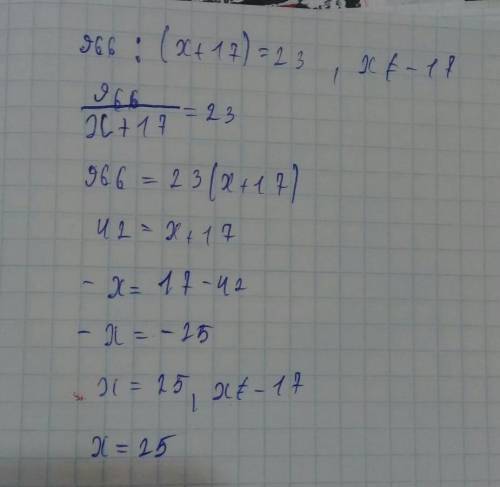 966 : (x+17) = 23 , x ≠ -17
966/x+17 = 23
966 = 23(x+17)
42 = x+17
-x = 17-42
-x = -25
x = 25, x ≠ -17
x = 25